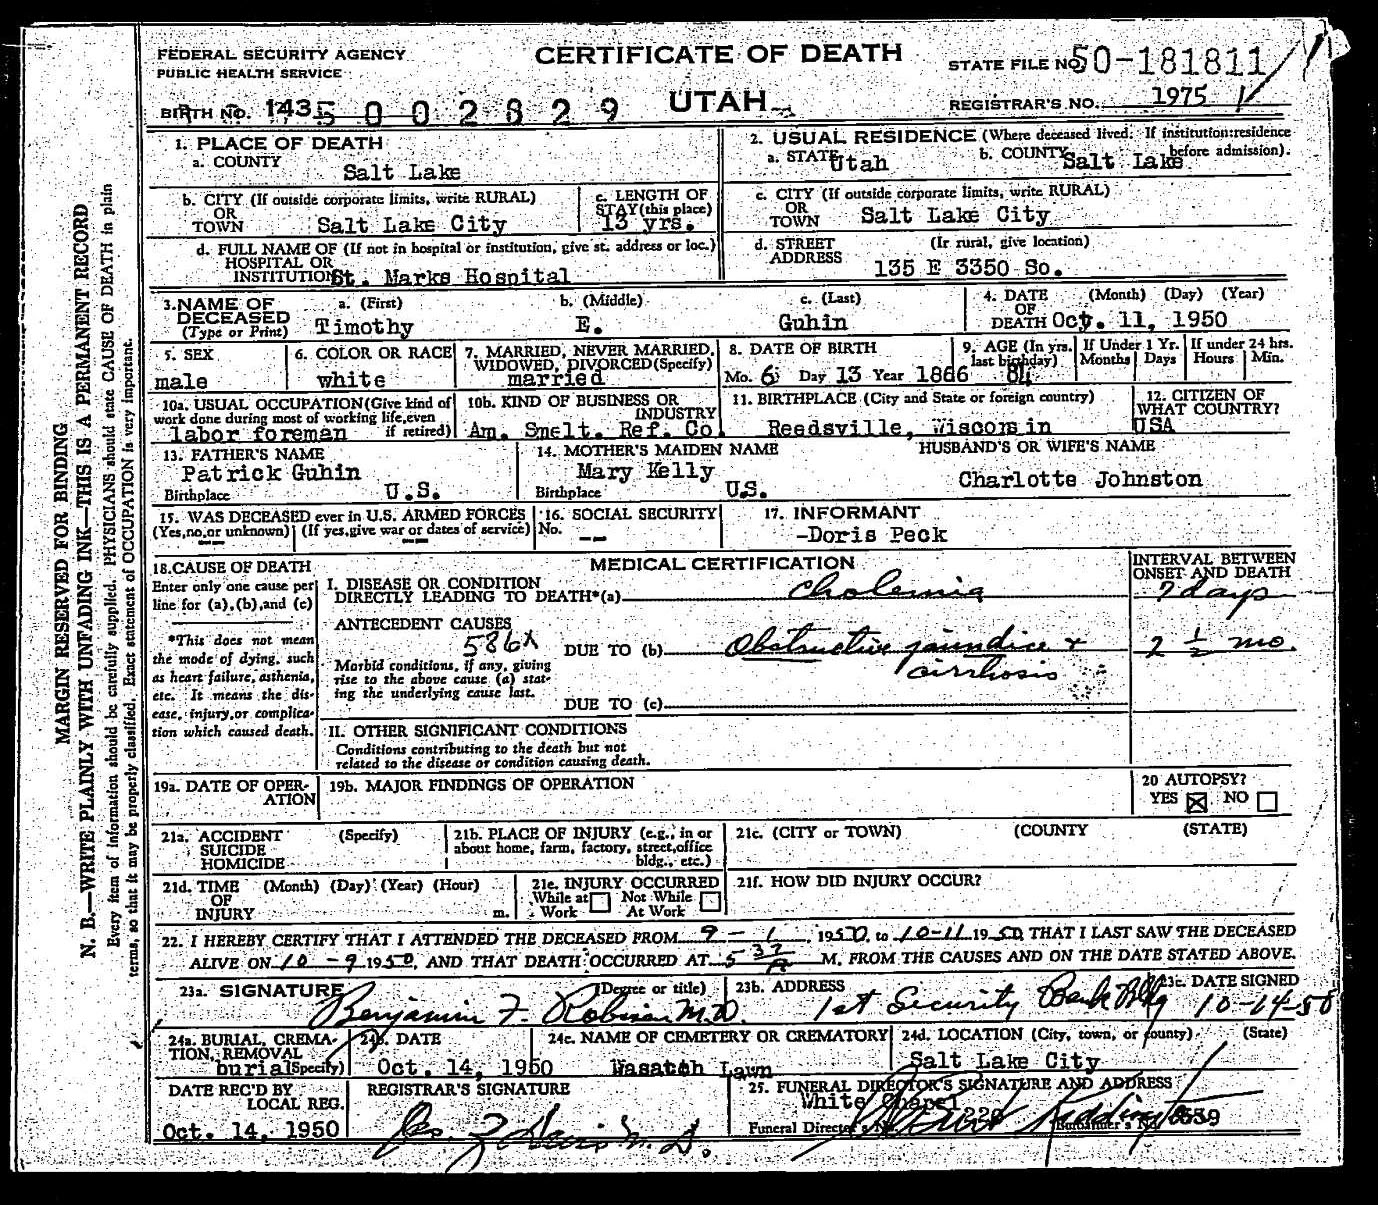 FEDERAL SECURITY AGENCY
PUBLIC HEALTH SERVICE
CERTIFICATE OF DEATH
STATE FILE NO. 50-181811
BIRTH NO. 143 5002829
UTAH
REGISTRAR'S NO. 1975
1. PLACE OF DEATH
a. COUNTY Salt Lake
2. USUAL RESIDENCE (Where deceased lived. If institution: residence before admission).
a. STATE Utah b. COUNTY Salt Lake
b. CITY (If outside corporate limits, write RURAL) OR TOWN Salt Lake City
c. LENGTH OF STAY (this place) 13 yrs.
c. CITY (If outside corporate limits, write RURAL) OR TOWN Salt Lake City
d. FULL NAME OF (If not in hospital or institution, give st. address or loc.) HOSPITAL OR INSTITUTION St. Marks Hospital
d. STREET ADDRESS (If rural, give location) 135 E 3350 So.
3. NAME OF DECEASED (Type or Print)
a. (First) Timothy
b. (Middle) E.
c. (Last) Guhin
4. DATE OF DEATH (Month) (Day) (Year) Oct. 11, 1950
5. SEX male
6. COLOR OR RACE white
7. MARRIED, NEVER MARRIED, WIDOWED, DIVORCED (Specify) married
8. DATE OF BIRTH Mo. 6 Day 13 Year 1866
9. AGE (In yrs. last birthday) 84
If Under 1 Yr. Months Days
If under 24 hrs. Hours Min.
10a. USUAL OCCUPATION (Give kind of work done during most of working life, even if retired) labor foreman
10b. KIND OF BUSINESS OR INDUSTRY Am. Smelt. Ref. Co.
11. BIRTHPLACE (City and State or foreign country) Reedsville, Wisconsin
12. CITIZEN OF WHAT COUNTRY? USA
13. FATHER'S NAME Patrick Guhin
Birthplace U.S.
14. MOTHER'S MAIDEN NAME Mary Kelly
Birthplace U.S.
HUSBAND'S OR WIFE'S NAME
Charlotte Johnston
15. WAS DECEASED ever in U.S. ARMED FORCES
(Yes, no, or unknown) -- (If yes, give war or dates of service) --
16. SOCIAL SECURITY No. --
17. INFORMANT
-Doris Peck
18. CAUSE OF DEATH
Enter only one cause per line for (a), (b), and (c)
*This does not mean the mode of dying, such as heart failure, asthenia, etc. It means the disease, injury, or complication which caused death.
MEDICAL CERTIFICATION
INTERVAL BETWEEN ONSET AND DEATH
I. DISEASE OR CONDITION DIRECTLY LEADING TO DEATH* (a) Cholemia 7 days
ANTECEDENT CAUSES
586X
Morbid conditions, if any, giving rise to the above cause (a) stating the underlying cause last.
DUE TO (b) Obstructive jaundice + cirrhosis 2 1/2 mo.
DUE TO (c)
II. OTHER SIGNIFICANT CONDITIONS
Conditions contributing to the death but not related to the disease or condition causing death.
19a. DATE OF OPERATION
19b. MAJOR FINDINGS OF OPERATION
20 AUTOPSY? YES ☒ NO ☐
21a. ACCIDENT SUICIDE HOMICIDE (Specify)
21b. PLACE OF INJURY (e.g., in or about home, farm, factory, street, office bldg., etc.)
21c. (CITY or TOWN) (COUNTY (STATE)
21d. TIME OF INJURY (Month) (Day) (Year) (Hour) m.
21e. INJURY OCCURRED While at Work ☐ Not While At Work ☐
21f. HOW DID INJURY OCCUR?
22. I HEREBY CERTIFY THAT I ATTENDED THE DECEASED FROM 9 - 1, 1950, to 10-11 1950, THAT I LAST SAW THE DECEASED
ALIVE ON 10 - 9 1950, AND THAT DEATH OCCURRED AT 5 37 A M. FROM THE CAUSES AND ON THE DATE STATED ABOVE.
23a. SIGNATURE (Degree or title) Benjamin F. Robison M.D.
23b. ADDRESS 1st Security Bank Bldg
23c. DATE SIGNED 10-14-50
24a. BURIAL, CREMATION, REMOVAL (Specify) burial
24b. DATE Oct. 14, 1950
24c. NAME OF CEMETERY OR CREMATORY Wasatch Lawn
24d. LOCATION (City, town, or county) (State) Salt Lake City
DATE REC'D BY LOCAL REG. Oct. 14, 1950
REGISTRAR'S SIGNATURE
25. FUNERAL DIRECTOR'S SIGNATURE AND ADDRESS
White Chapel
Funeral Director's No. 220
Embalmer's No. 639
MARGIN RESERVED FOR BINDING
N. B.—WRITE PLAINLY WITH UNFADING INK—THIS IS A PERMANENT RECORD
Every item of information should be carefully supplied. PHYSICIANS should state CAUSE OF DEATH in plain
terms, so that it may be properly classified. Exact statement of OCCUPATION is very important.